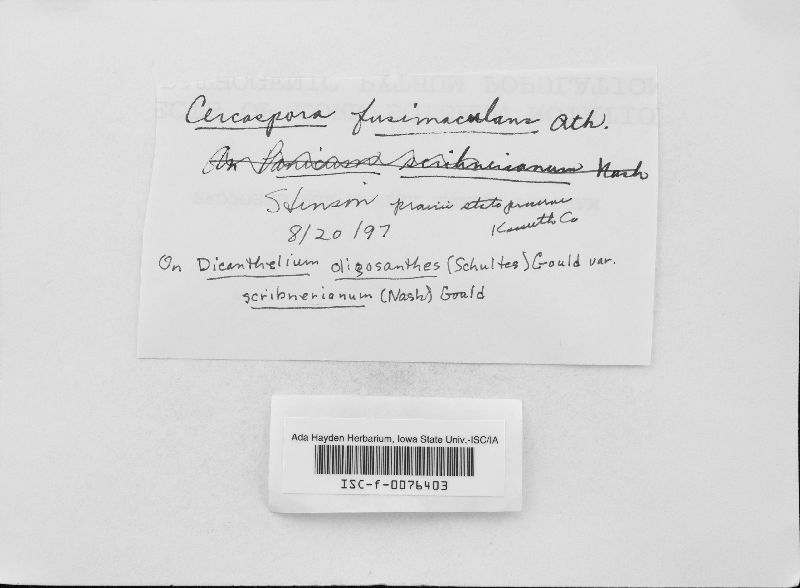 Cercospora fusimaculans Ath.
On Panicum scribnerianum Nash
Stinson prairie state preserve
8/20/97 Kossuth Co
On Dicanthelium oligosanthes (Schultes) Gould var.
scribnerianum (Nash) Gould
Ada Hayden Herbarium, Iowa State Univ.-ISC/IA
ISC-f-0076403